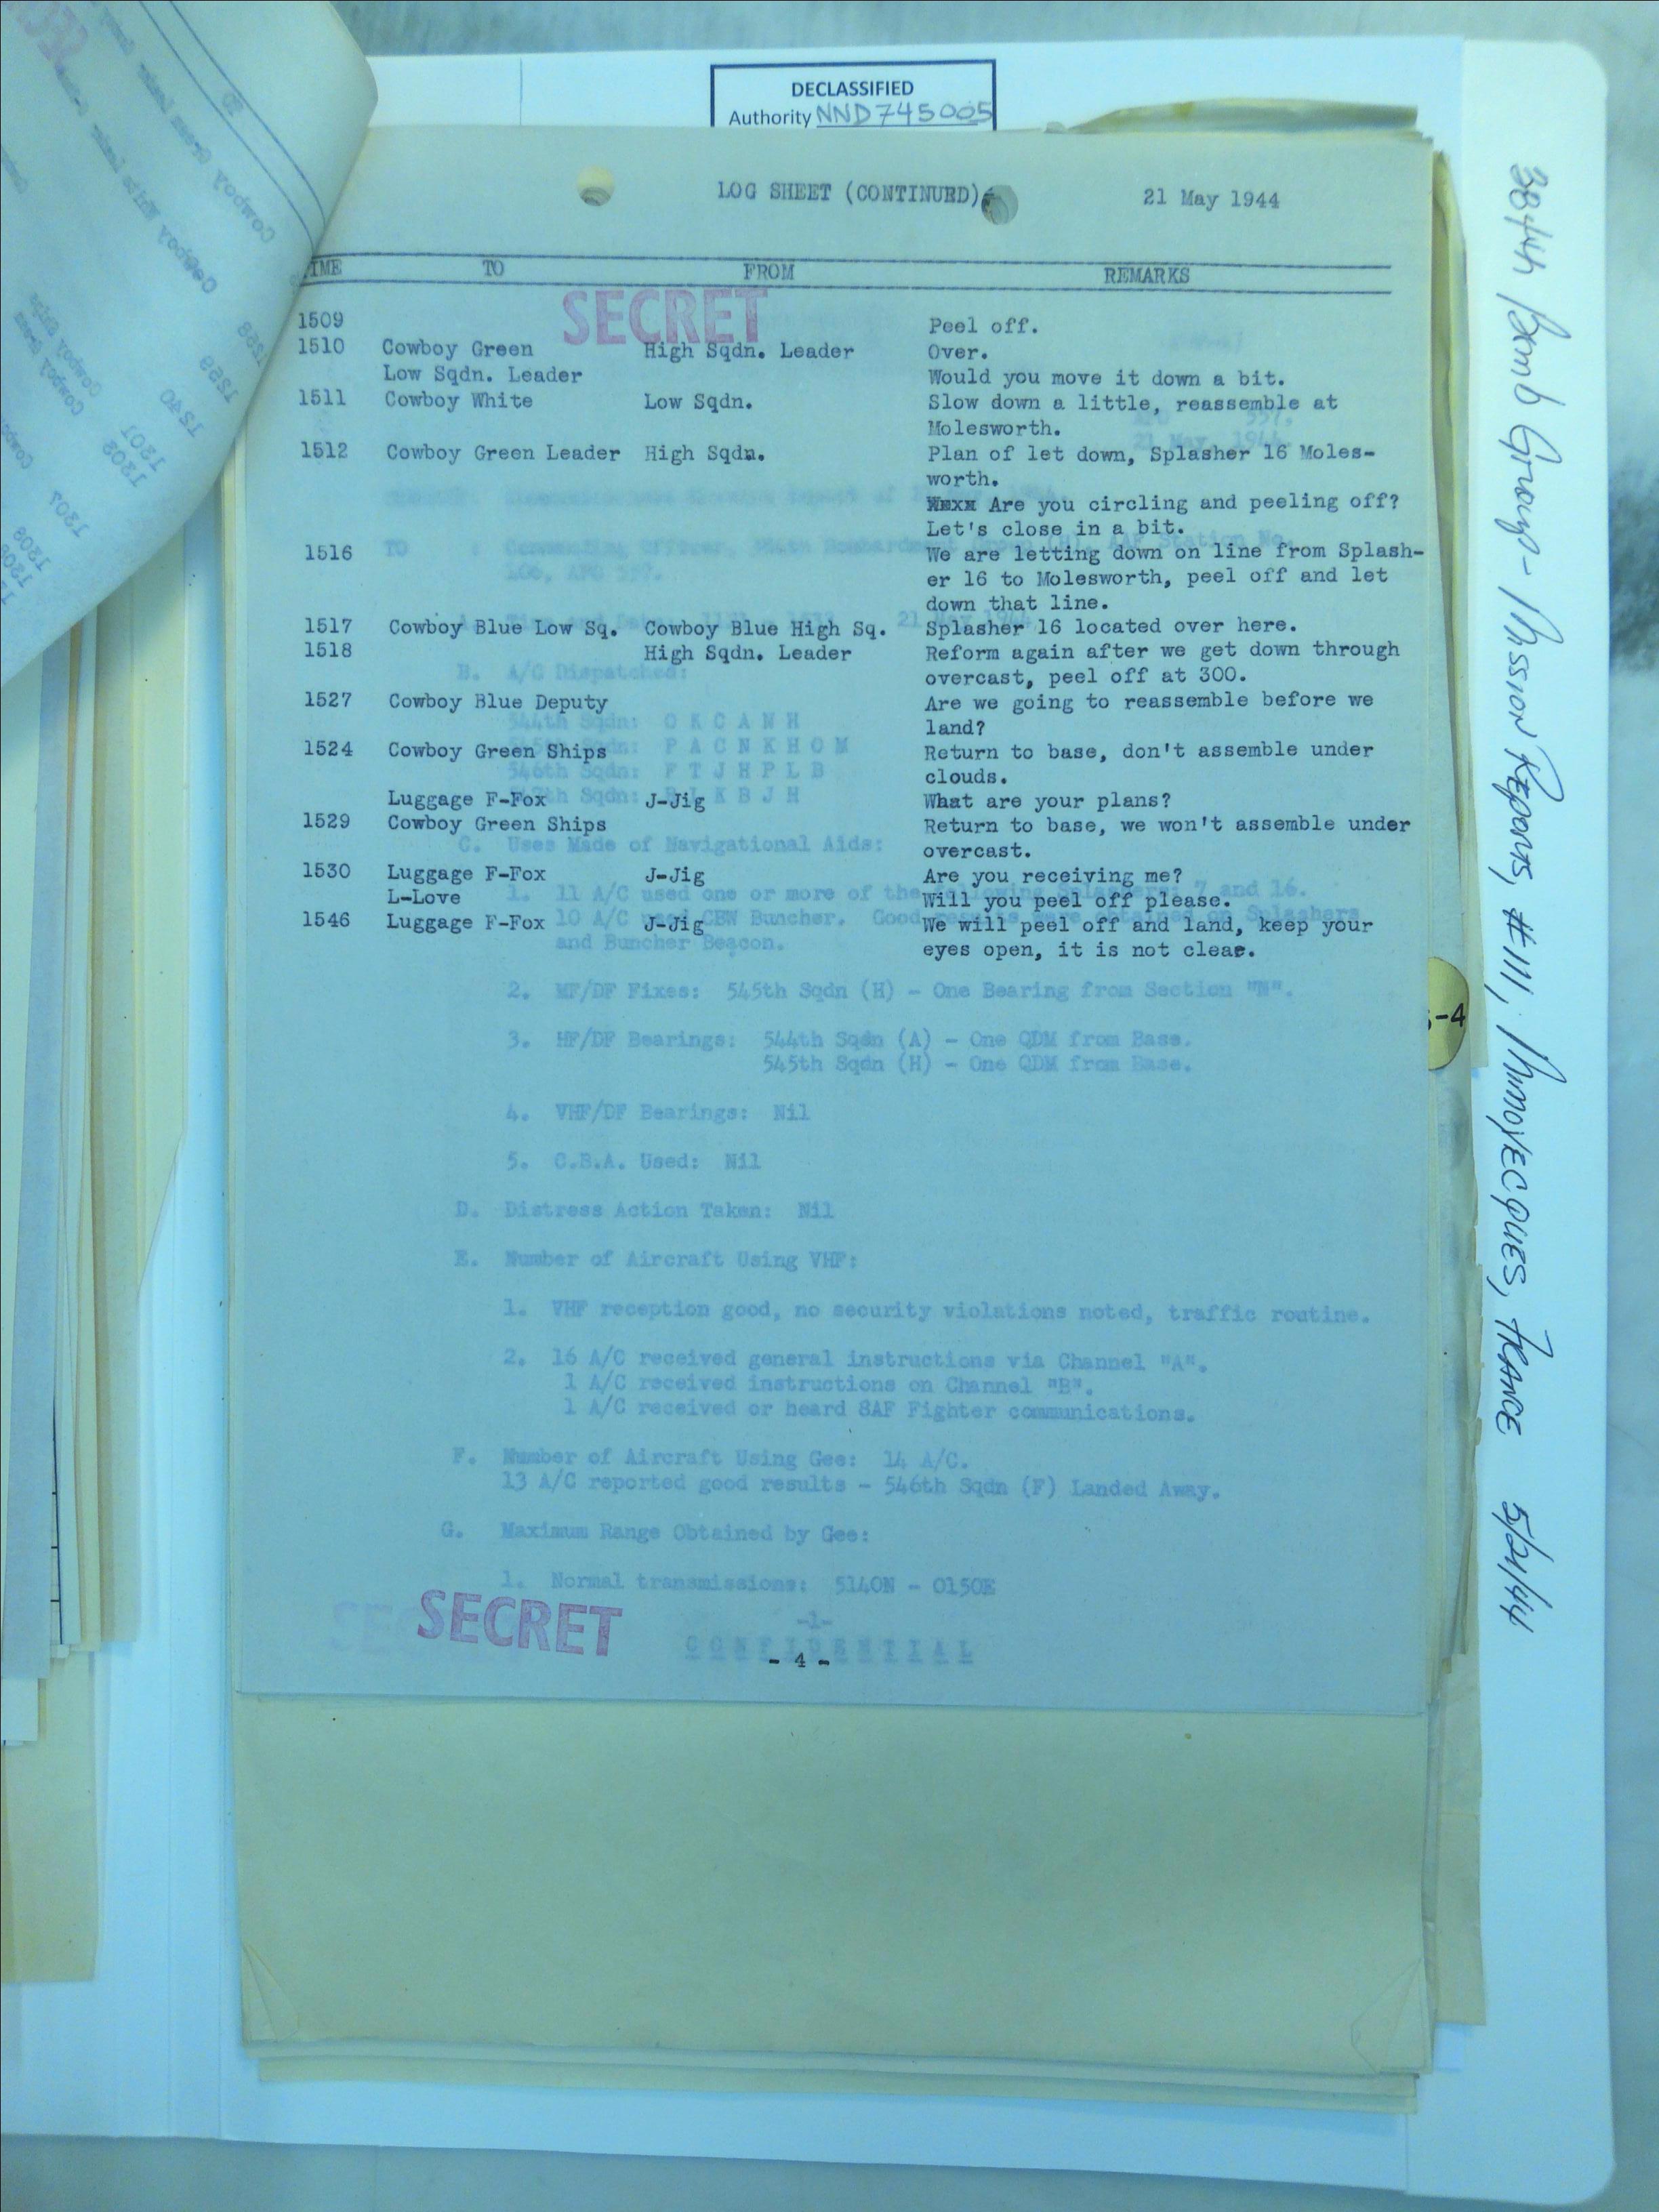 DECLASSIFIED
Authority NND745005
LOG SHEET (CONTINUED) 21 May 1944
TIME TO FROM REMARKS
SECRET
1509 Peel off.
1510 Cowboy Green High Sqdn. Leader Over.
Low Sqdn. Leader Would you move it down a bit.
1511 Cowboy White Low Sqdn. Slow down a little, reassemble at
Molesworth.
1512 Cowboy Green Leader High Sqdn. Plan of let down, Splasher 16 Moles-
worth.
Are you circling and peeling off?
Let's close in a bit.
1516 We are letting down on line from Splash-
er 16 to Molesworth, peel off and let
down that line.
1517 Cowboy Blue Low Sq. Cowboy Blue High Sq. Splasher 16 located over here.
1518 High Sqdn. Leader Reform again after we get down through
overcast, peel off at 300.
1527 Cowboy Blue Deputy Are we going to reassemble before we
land?
1524 Cowboy Green Ships Return to base, don't assemble under
clouds.
Luggage F-Fox J-Jig What are your plans?
1529 Cowboy Green Ships Return to base, we won't assemble under
overcast.
1530 Luggage F-Fox J-Jig Are you receiving me?
L-Love Will you peel off please.
1546 Luggage F-Fox J-Jig We will peel off and land, keep your
eyes open, it is not clear.
B. A/C Dispatched:
544th Sqdn: O K C A N H
545th Sqdn: P A C N K H O M
546th Sqdn: F T J H P L B
C. Uses Made of Navigational Aids:
1. 11 A/C used one or more of the following Splashers: 7 and 16.
10 A/C used CBW Buncher. Good results were obtained on Splashers
and Buncher Beacon.
2. MF/DF Fixes: 545th Sqdn (H) - One Bearing from Section "N".
3. HF/DF Bearings: 544th Sqdn (A) - One QDM from Base.
545th Sqdn (H) - One QDM from Base.
4. VHF/DF Bearings: Nil
5. C.B.A. Used: Nil
D. Distress Action Taken: Nil
E. Number of Aircraft Using VHF:
1. VHF reception good, no security violations noted, traffic routine.
2. 16 A/C received general instructions via Channel "A".
1 A/C received instructions on Channel "B".
1 A/C received or heard 8AF Fighter communications.
F. Number of Aircraft Using Gee: 14 A/C.
13 A/C reported good results - 546th Sqdn (F) Landed Away.
G. Maximum Range Obtained by Gee:
1. Normal transmissions: 5140N - 0150E
-1-
SECRET
CONFIDENTIAL
- 4 -
-4
384th Bomb Group - Mission Reports, #111, Mimoyecques, France 5/21/44